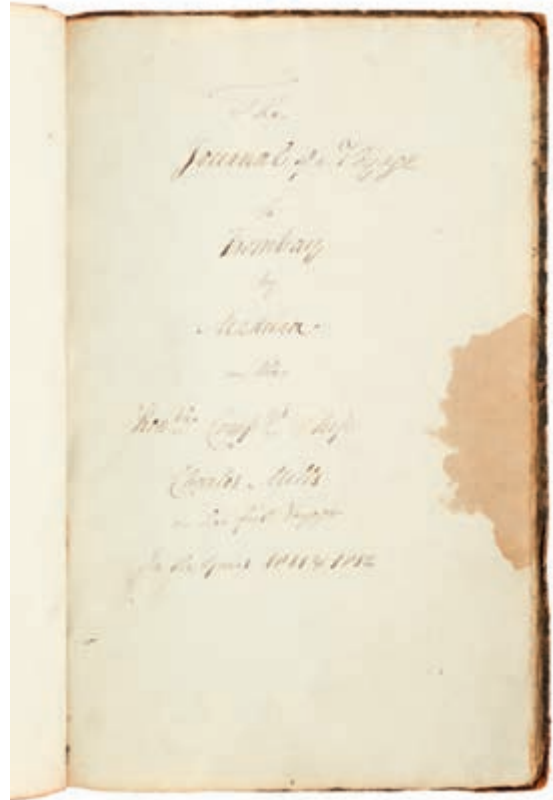 The
Journal of a Voyage
to
Bombay
by
Madeira
in the
Honble Compys Ship
Charles Mills
on her first Voyage
In the Years 1811 & 1812